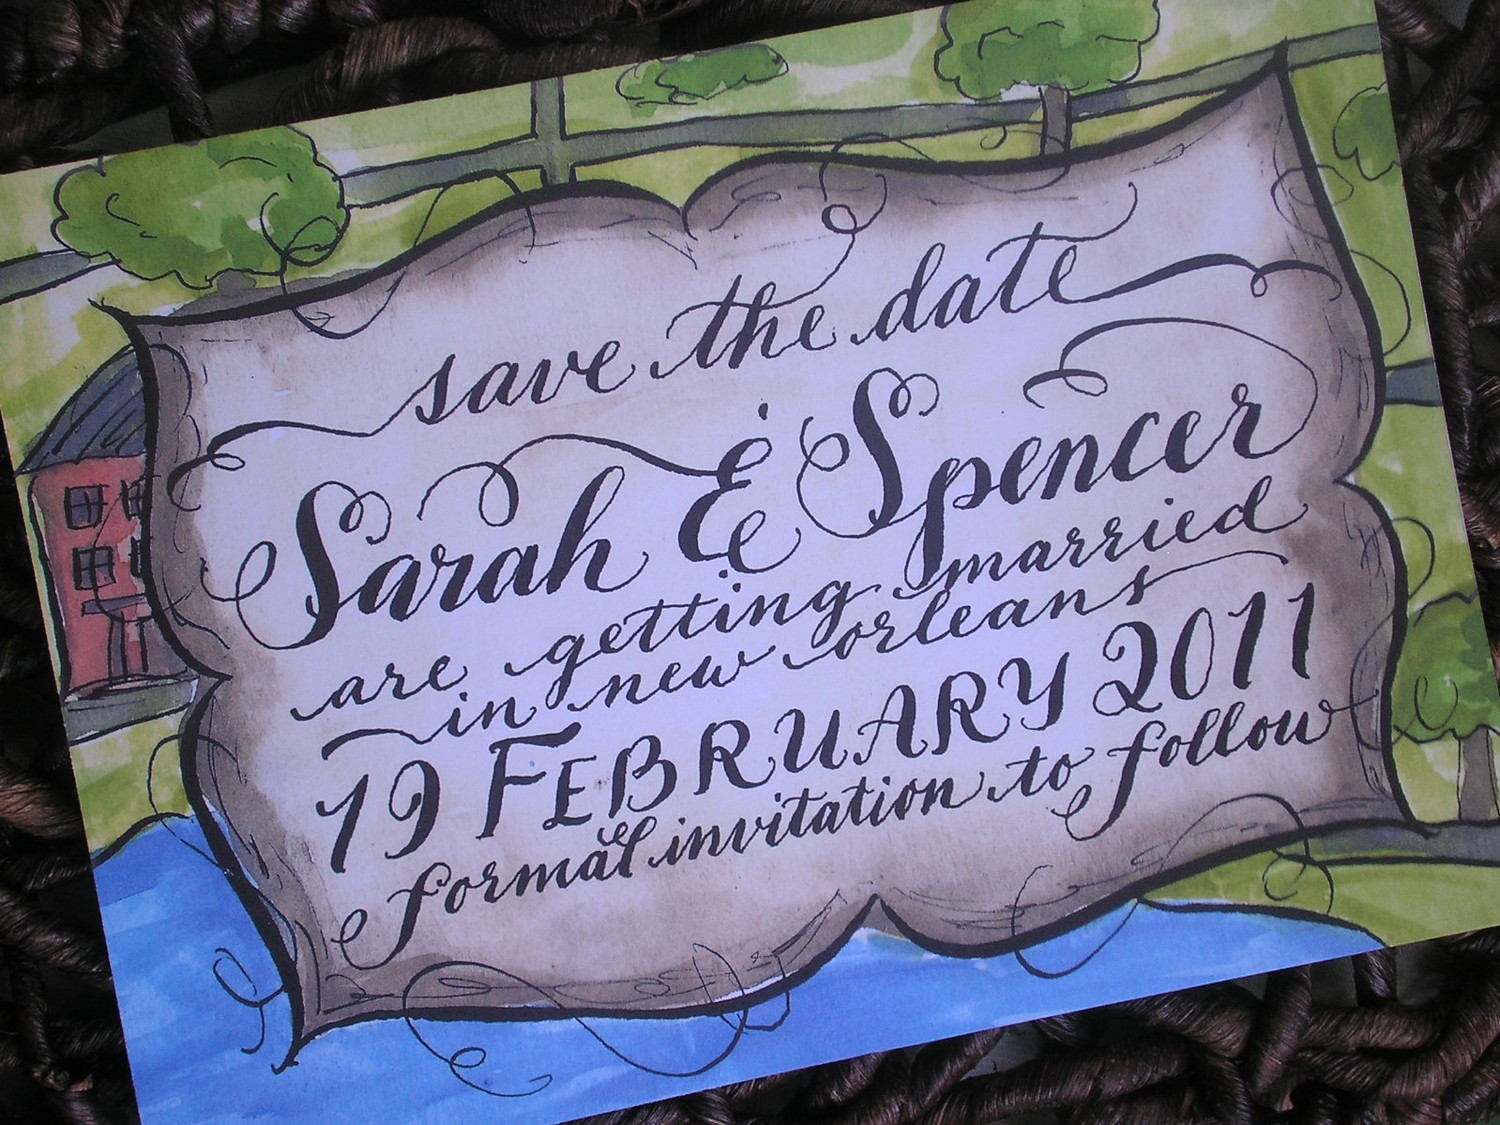 save the date
Sarah & Spencer
are getting married
in new orleans
19 FEBRUARY 2011
formal invitation to follow